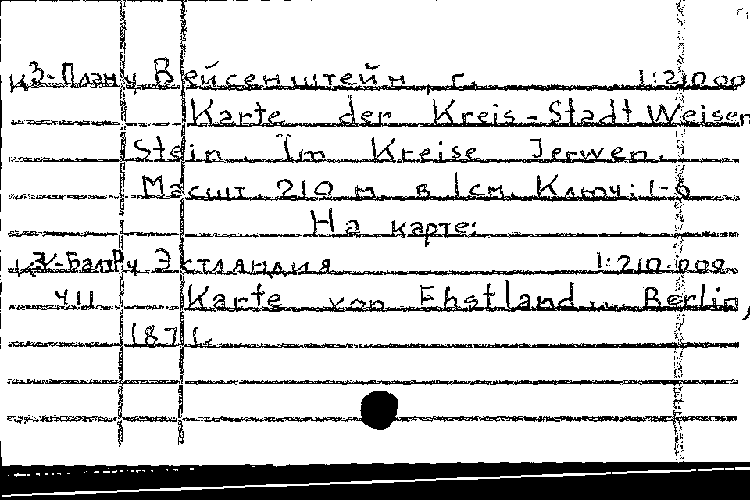 к3-План Вейсенштейн, г. 1:21000
Karte der Kreis-Stadt Weisen
Stein. Im Kreise Jerwen.
Масшт. 210 м. в 1 см. Ключ: 1-6
На карте:
Эстляндия 1:210.000.
Ч11 Karte von Ehstland... Berlin,
1871.